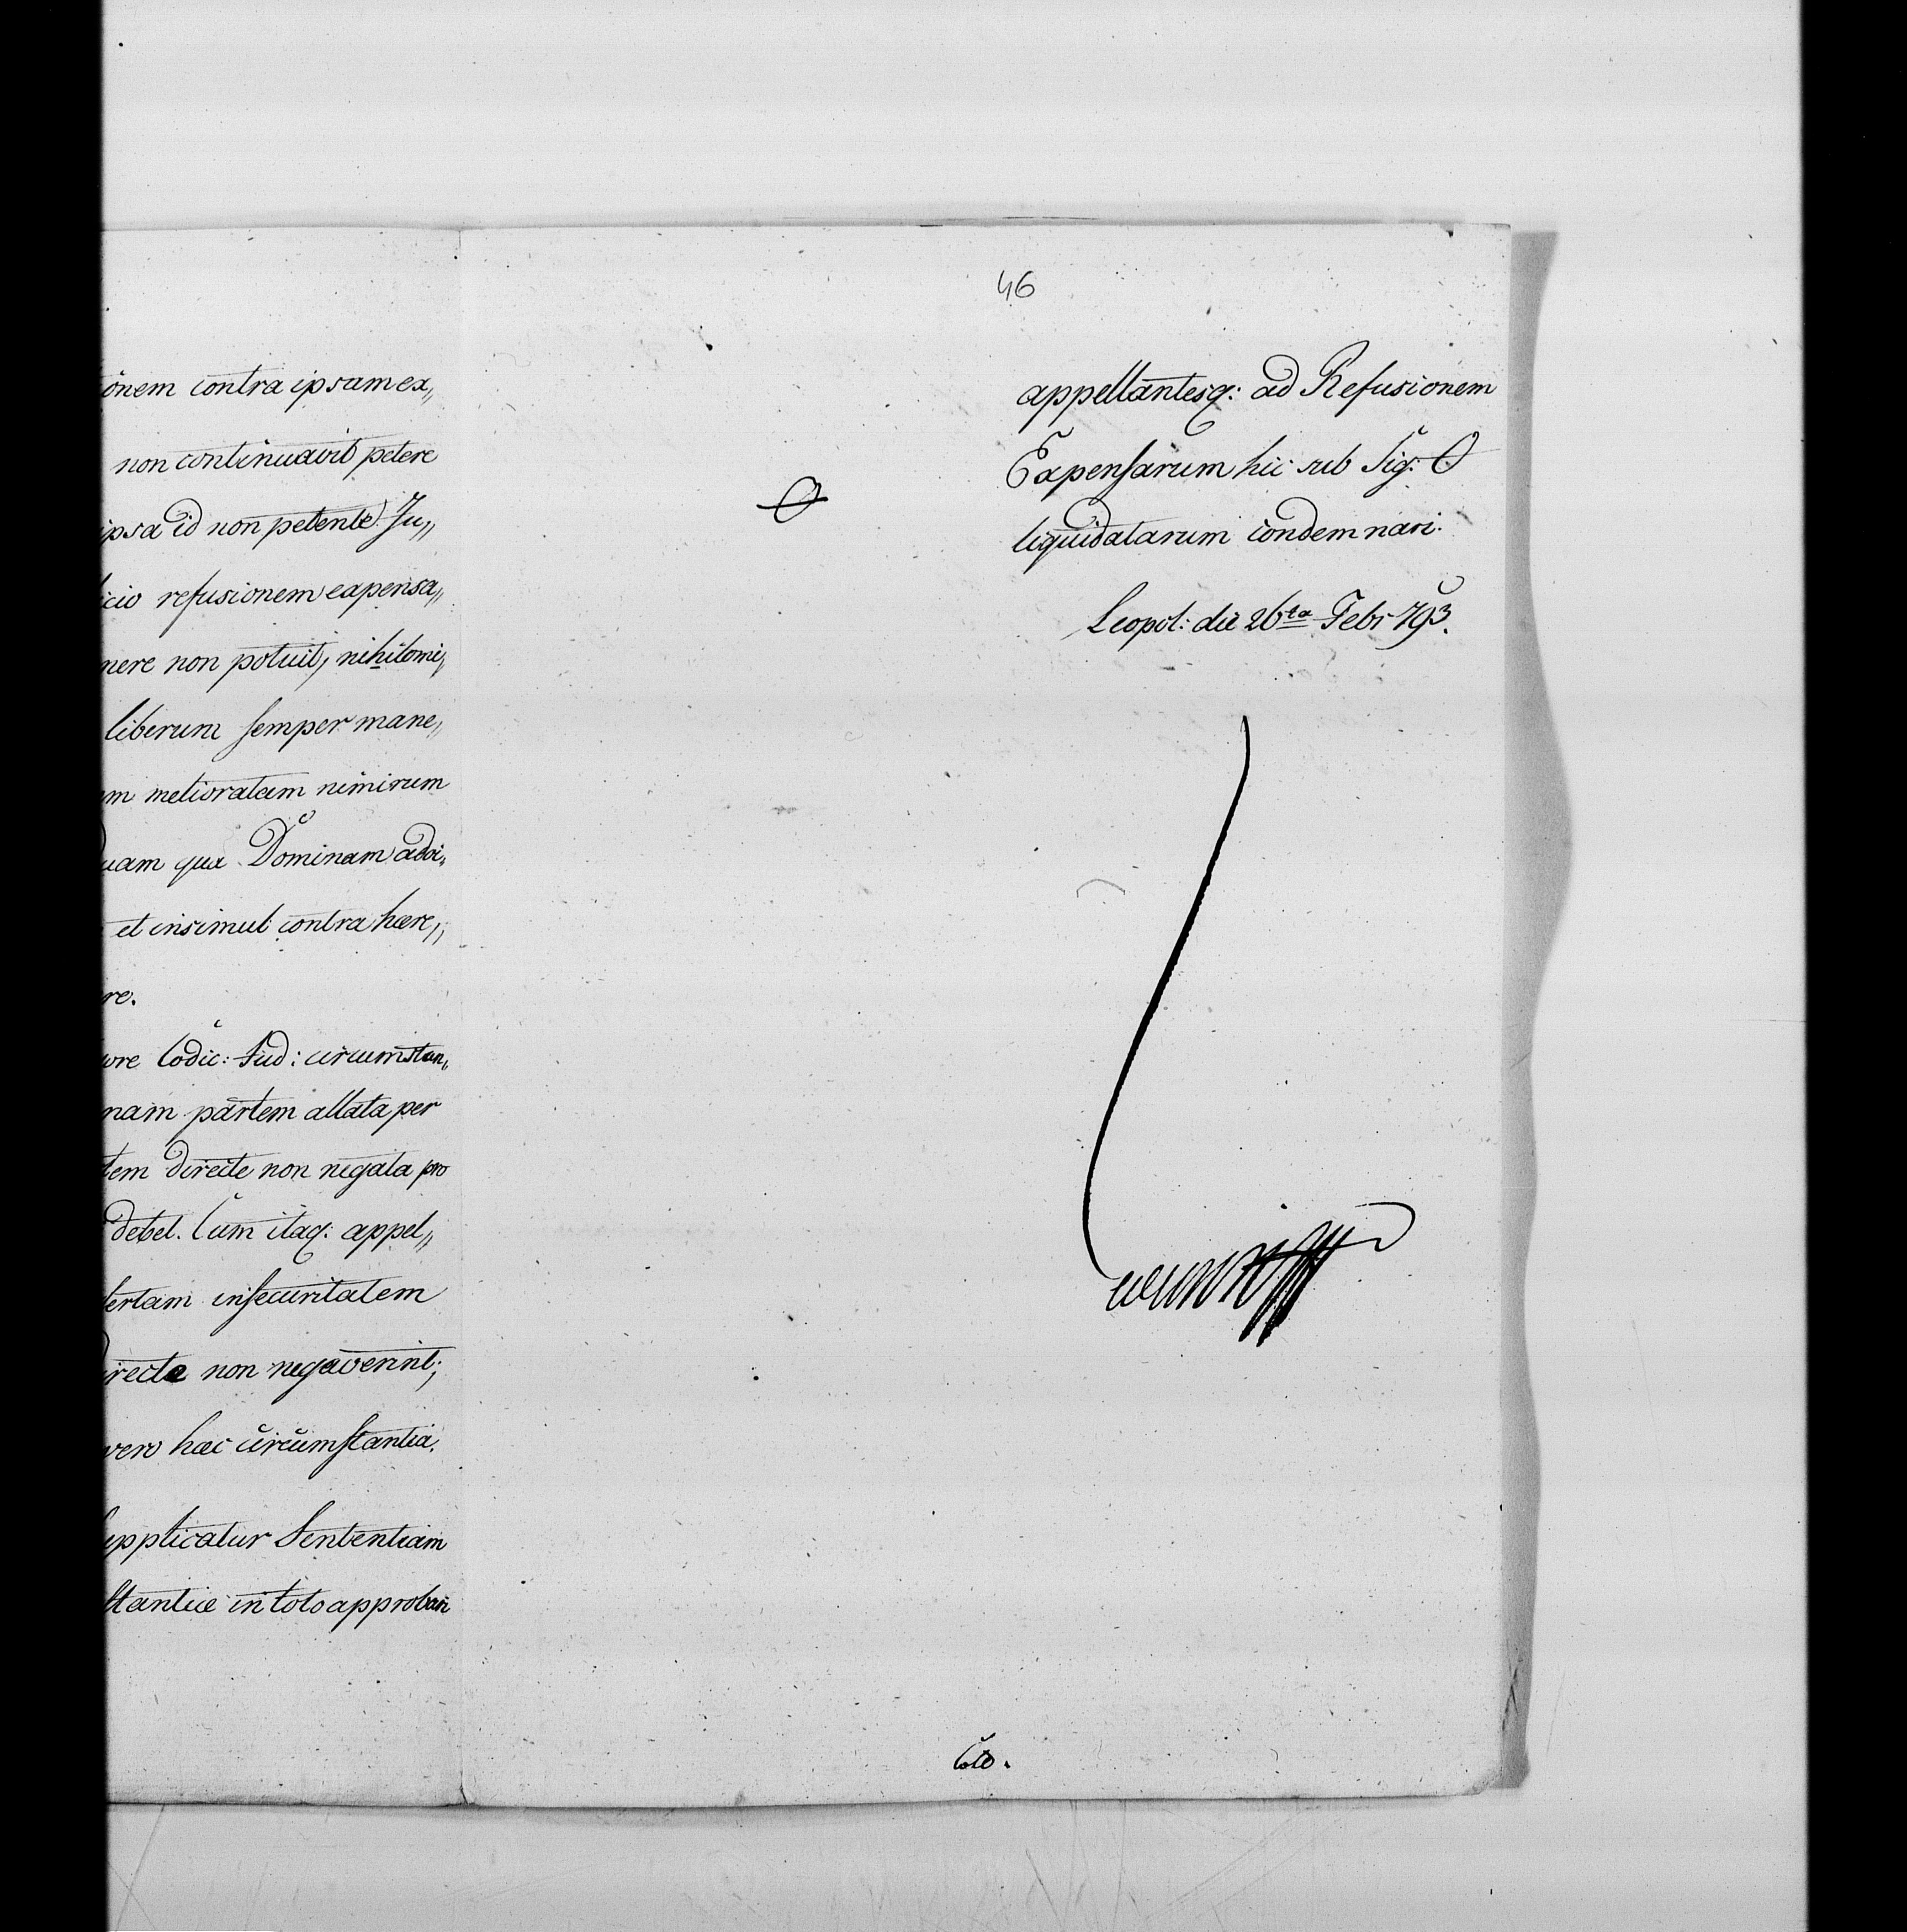 onem contra ipsam ex,,
non continuavit petere
ipsa id non petente Ju,,
icio refusionem expensa,,
nere non potuit, nihilomi,,
liberum semper mane,,
em melioratam nimirum
quam qua Dominam
et insimul contra hære,,
re.
ore Codic: Jud: circumstan,,
nam partem allata per
tem directe non negata pro
debet. Cum itaq: appel,,
insecuritatem
irecte non negaverint;
vero hæc circumstantia.
upplicatur Sententiam
stantiæ in toto approbari
46
appellantesq: ad Refusionem
Expensarum hic sub Sig:
liquidatarum condemnari.
Leopol: die 26ta Febr 793.